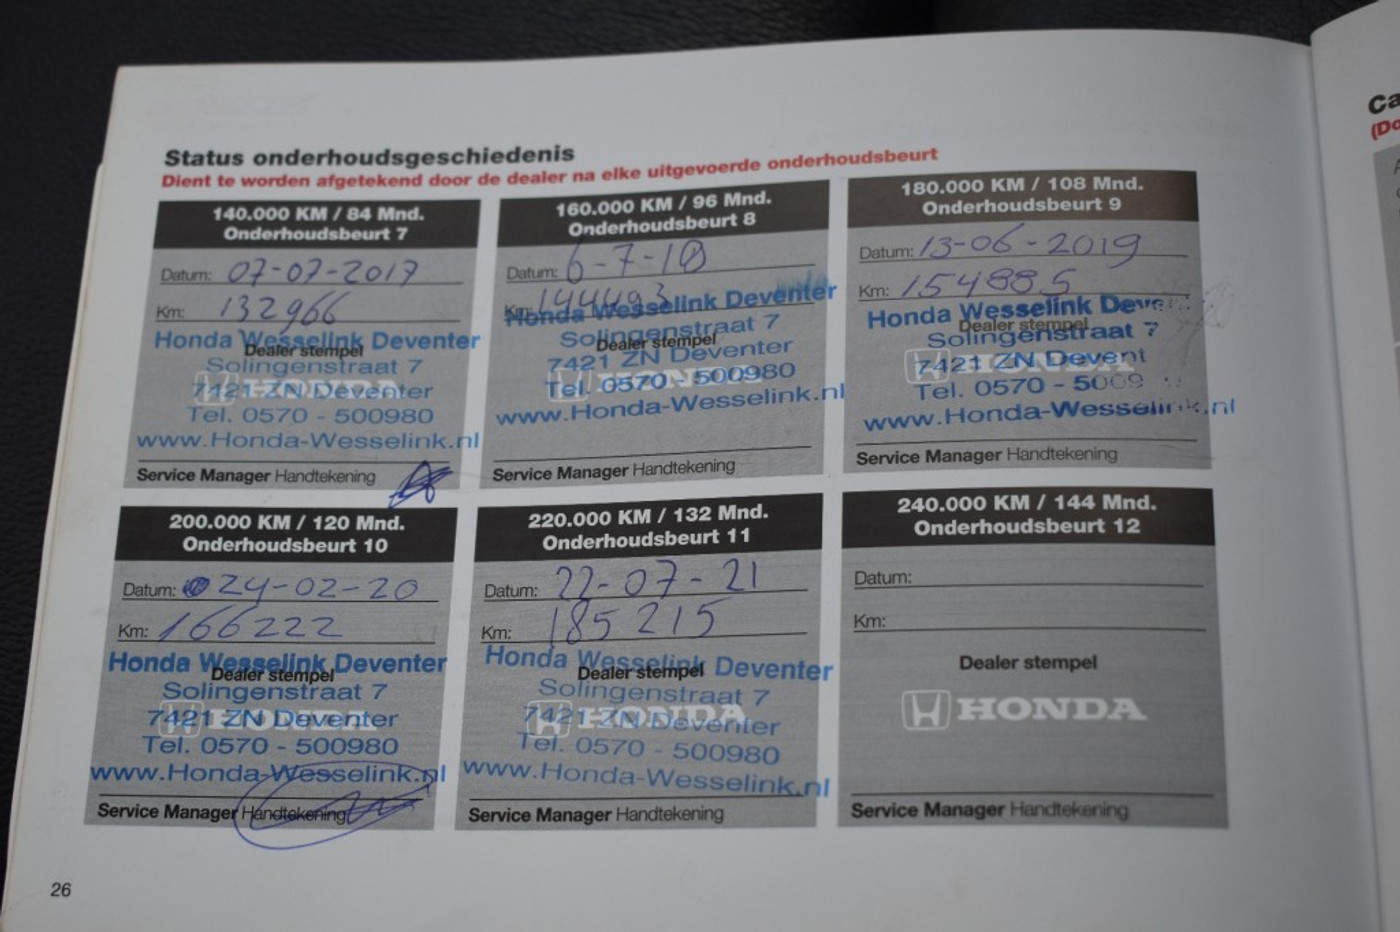 Status onderhoudsgeschiedenis
Dient te worden afgetekend door de dealer na elke uitgevoerde onderhoudsbeurt
140.000 KM / 84 Mnd.
Onderhoudsbeurt 7
Datum: 07-07-2017
Km: 132966
Honda Wesselink Deventer
Dealer stempel
Solingenstraat 7
HONDA
7421 ZN Deventer
Tel. 0570 - 500980
www.Honda-Wesselink.nl
Service Manager Handtekening
160.000 KM / 96 Mnd.
Onderhoudsbeurt 8
Datum: 6-7-18
Km: 144493
Honda Wesselink Deventer
Solingenstraat 7
Dealer stempel
7421 ZN Deventer
HONDA
Tel. 0570 - 500980
www.Honda-Wesselink.nl
Service Manager Handtekening
180.000 KM / 108 Mnd.
Onderhoudsbeurt 9
Datum: 13-06-2019
Km: 154885
Honda Wesselink Deve
Dealer stempel
Solingenstraat 7
7421 ZN Devent
HONDA
Tel. 0570 - 5009
www.Honda-Wesselink.nl
Service Manager Handtekening
200.000 KM / 120 Mnd.
Onderhoudsbeurt 10
Datum: 24-02-20
Km: 166222
Honda Wesselink Deventer
Dealer stempel
Solingenstraat 7
7421 ZN Deventer
HONDA
Tel. 0570 - 500980
www.Honda-Wesselink.nl
Service Manager Handtekening
220.000 KM / 132 Mnd.
Onderhoudsbeurt 11
Datum: 22-07-21
Km: 185215
Honda Wesselink Deventer
Dealer stempel
Solingenstraat 7
7421 ZN Deventer
HONDA
Tel. 0570 - 500980
www.Honda-Wesselink.nl
Service Manager Handtekening
240.000 KM / 144 Mnd.
Onderhoudsbeurt 12
Datum:
Km:
Dealer stempel
HONDA
Service Manager Handtekening
26
Ca
(Do